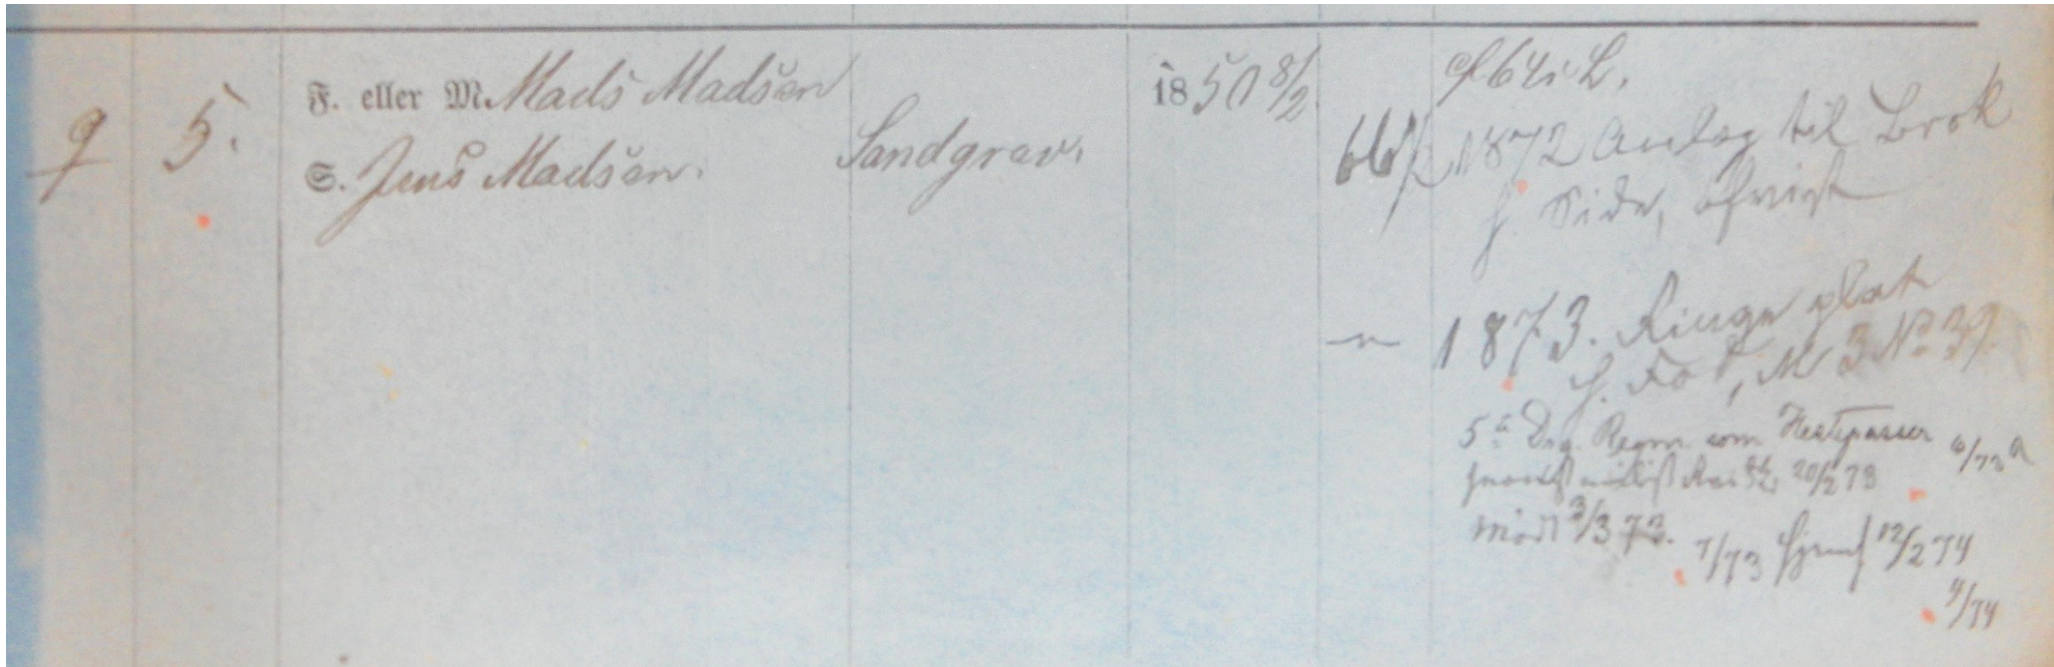 9 5. F. eller M. Mads Madsen 1850 8/2 64 i L.
S. Jens Madsen. Sandgrav. 66 1/2 1872 Anlæg til Brok
h. Side,
" 1873. Ringe plat
h. Fod, M 3 No 39.
5te Drag. Regm. som Hestepasser 6/73
20/2 73
mødt 3/3 73. 7/73 hjems 12/2 74
4/74